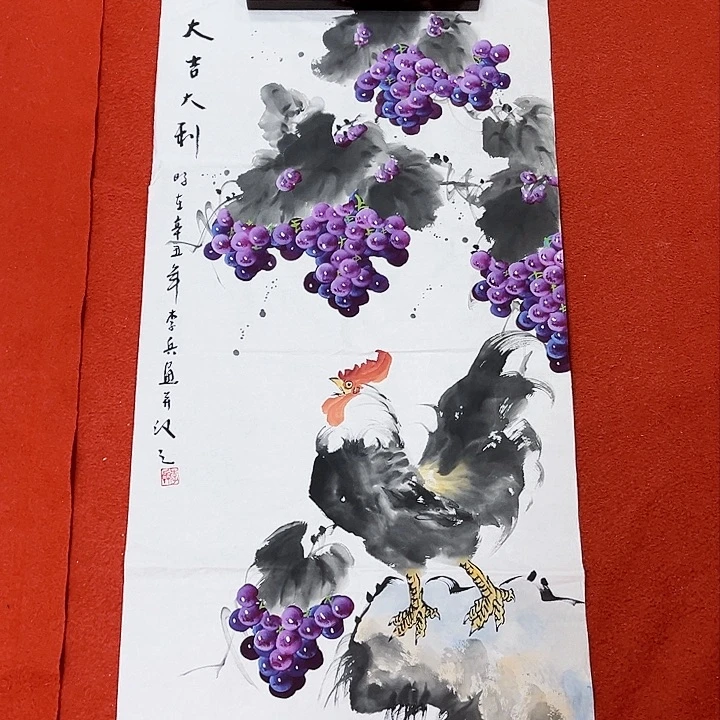 大吉大利
时在辛丑年李兵画并汉之